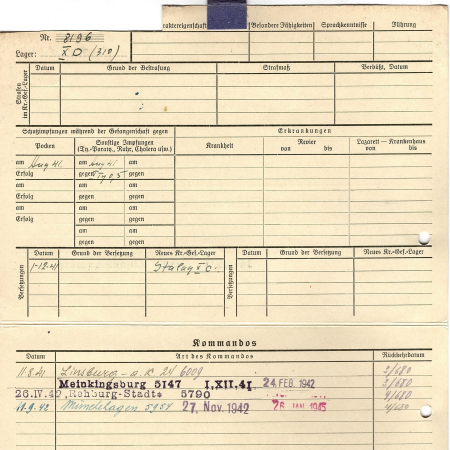 Charaktereigenschaft Besondere Fähigkeiten Sprachkenntnisse Führung
Nr. 8196
Lager: X D (310)
Datum Grund der Bestrafung Strafmaß Verbüßt, Datum
Strafen im Kr.-Gef.-Lager
Schutzimpfungen während der Gefangenschaft gegen
Erkrankungen
Pocken
Sonstige Impfungen
(Ty.-Paraty., Ruhr, Cholera usw.)
Krankheit
Revier
von bis
Lazarett – Krankenhaus
von bis
am Aug 41. am Aug 41 am
Erfolg gegen gegen
am am am
Erfolg gegen gegen
am am am
Erfolg gegen gegen
am am
gegen gegen
Versetzungen
Datum Grund der Versetzung Neues Kr.-Gef.-Lager
Versetzungen
Datum Grund der Versetzung Neues Kr.-Gef.-Lager
1-12-41 Stalag X D.
Kommandos
Datum Art des Kommandos Rückkehrdatum
11.8.41 Linsburg - a. K. 24 6009 3/680
Meinkingsburg 5147 1.XII.41 24. FEB. 1942 3/680
26.IV.42, Rehburg-Stadt 5790 4/680
11.9.42 Münchehagen 5954 27. Nov. 1942 26. JAN. 1945 4/680